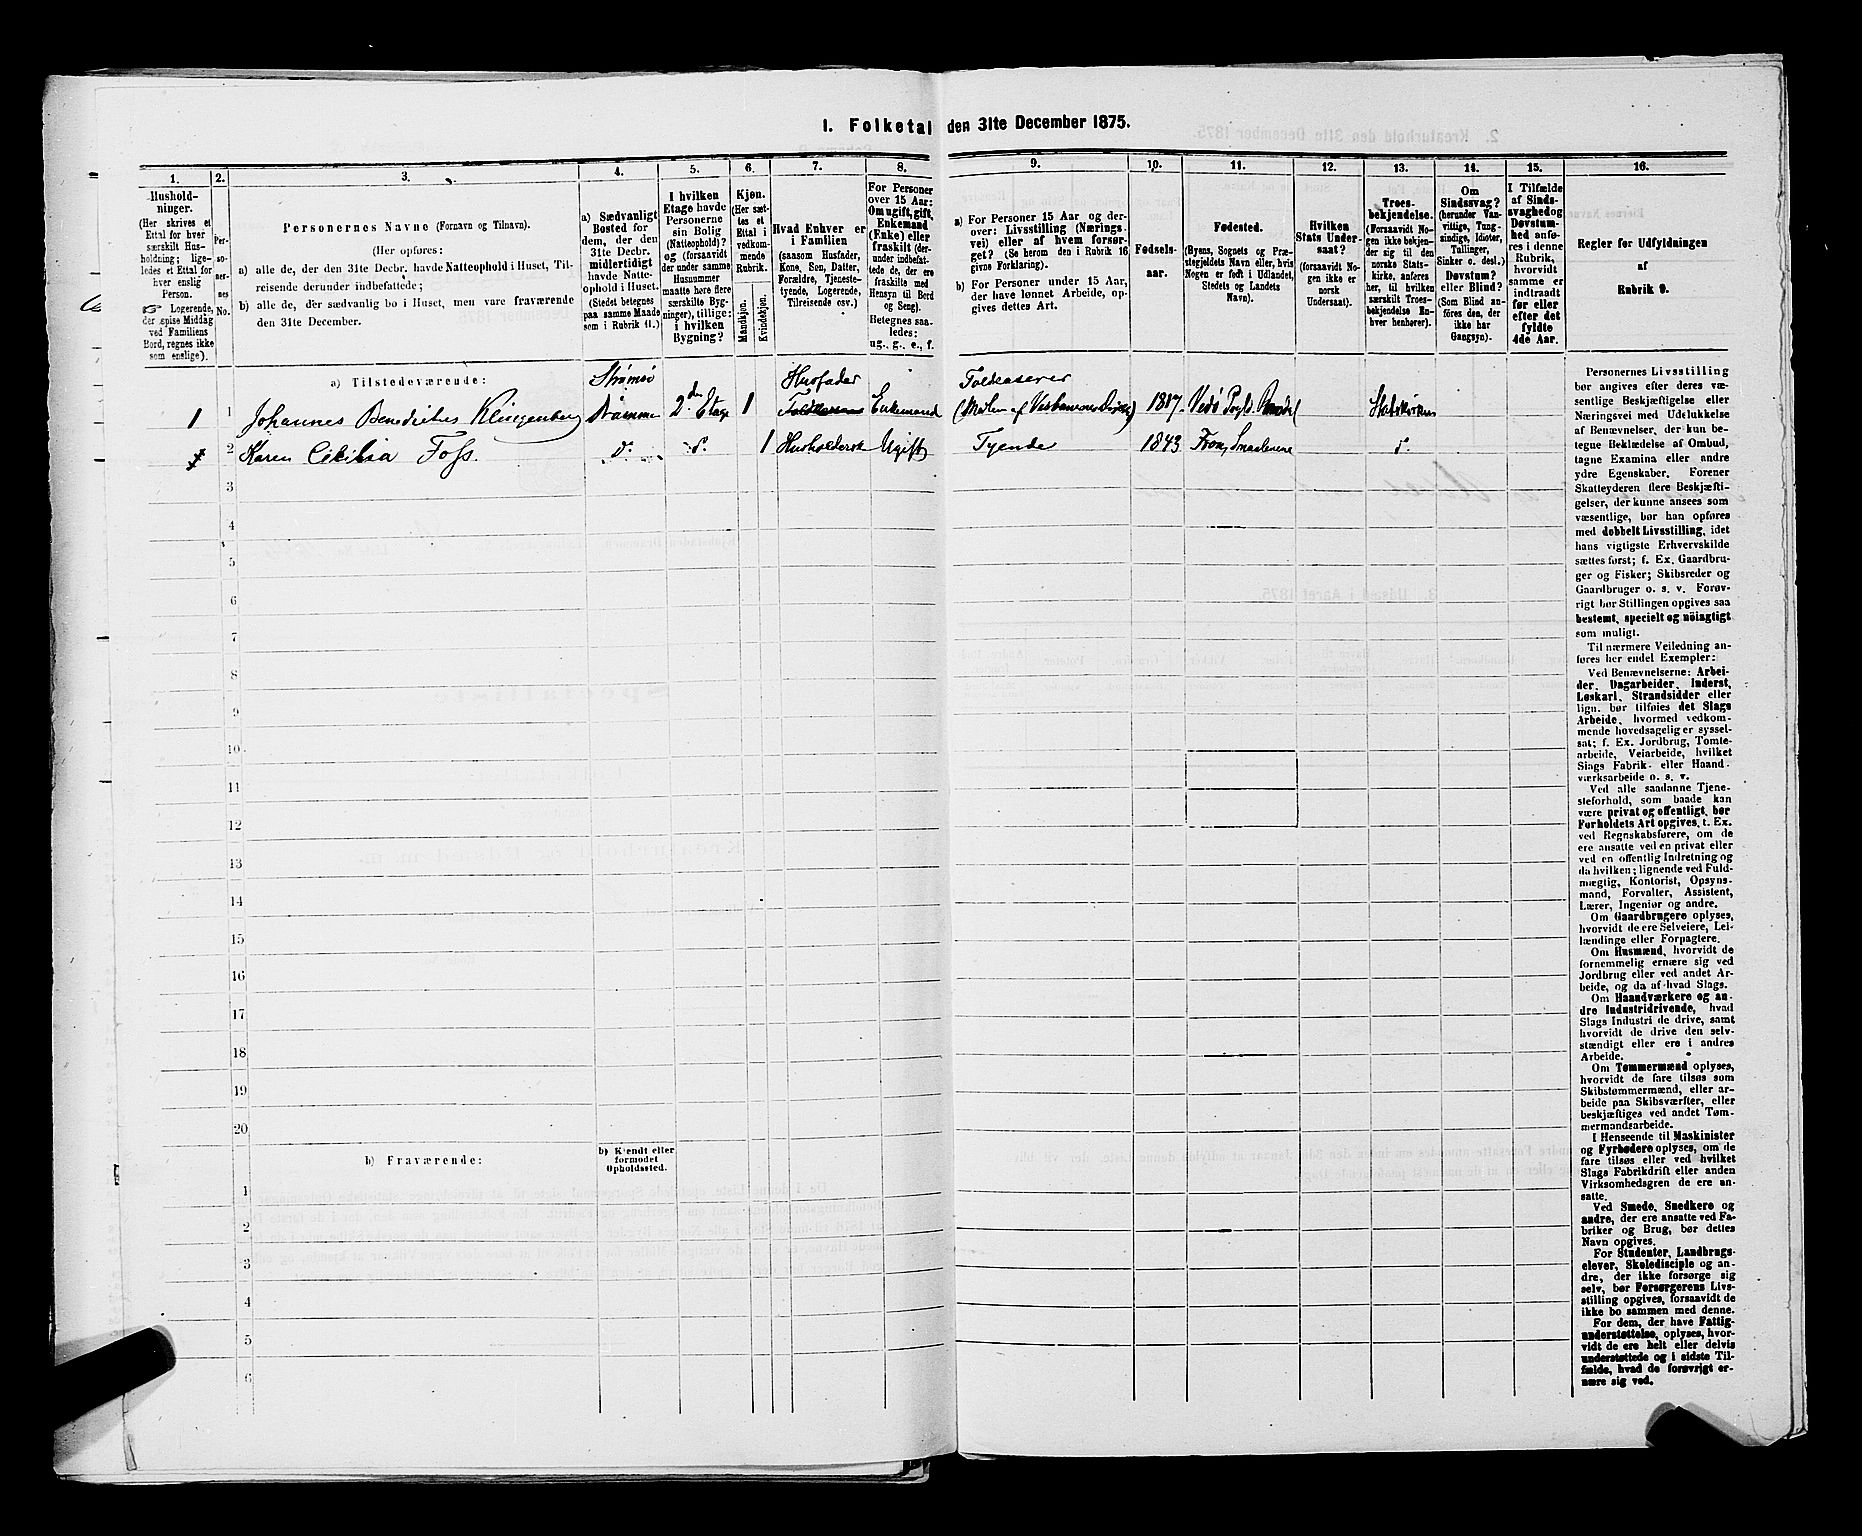 1. Folketal den 31te December 1875.
1.
Hushold-
ninger.
(Her skrives et
Ettal for hver
særskilt Hus-
holdning; lige-
ledes et Ettal for
hver enslig
Person.
Logerende,
der spise Middag
ved Familiens
Bord, regnes ikke
som enslige).
2.
Per-
so-
ner-
nes
No.
3.
Personernes Navne (Fornavn og Tilnavn).
(Her opføres:
a) alle de, der den 31te Decbr. havde Natteophold i Huset, Til-
reisende derunder indbefattede;
b) alle de, der sædvanlig bo i Huset, men vare fraværende
den 31te December.
4.
a) Sædvanligt
Bosted for
dem, der den
31te Decbr.
midlertidigt
havde Natte-
ophold i Huset.
(Stedet betegnes
paa samme Maade
som i Rubrik 11.)
5.
I hvilken
Etage havde
Personerne
sin Bolig
(Natteophold)?
og (forsaavidt
der under samme
Husnummer
maatte høre flere
særskilte Byg-
ninger), tillige:
i hvilken
Bygning?
6.
Kjøn.
(Her sæt-
tes et
Ettal i
vedkom-
mende
Rubrik.
Mandkjøn.
Kvindekjøn.
7.
Hvad Enhver er
i Familien
(saasom Husfader,
Kone, Søn, Datter,
Forældre, Tjeneste-
tyende, Logerende,
Tilreisende osv.)
8.
For Personer
over 15 Aar:
Om ugift, gift,
Enkemand
(Enke) eller
fraskilt (der-
under indbefat-
tede de, der ere
fraskilte med
Hensyn til Bord
og Seng).
Betegnes saa-
ledes:
ug., g., e., f.
9.
a) For Personer 15 Aar og der-
over: Livsstilling (Nærings-
vei) eller af hvem forsør-
get? (Se herom den i Rubrik 16
givne Forklaring).
b) For Personer under 15 Aar,
der have lønnet Arbeide, op-
gives dettes Art.
10.
Fødsels-
aar.
11.
Fødested.
(Byens, Sognets og Præ-
stegjeldets Navn eller, hvis
Nogen er født i Udlandet,
Stedets og Landets
Navn).
12.
Hvilken
Stats Under-
saat?
(forsaavidt No-
gen ikke er
norsk
Undersaat).
13.
Troes-
bekjendelse.
(Forsaavidt No-
gen ikke bekjen-
der sig til den
norske Stats-
kirke, anføres
her, til hvilken
særskilt Troes-
bekjendelse En-
hver henhører).
14.
Om
Sindssvag?
(herunder Van-
vittige, Tung-
sindige, Idioter,
Tullinger,
Sinker o. desl.)
Døvstum?
eller Blind?
(Som Blind an-
føres den, der
ikke har
Gangsyn).
15.
I Tilfælde
af Sinds-
svaghed og
Døvstum-
hed anfø-
res i denne
Rubrik,
hvorvidt
samme er
indtraadt
før eller
efter det
fyldte
4de Aar.
16.
Regler for Udfyldningen
af
Rubrik 9.
a) Tilstedeværende:
Strømsø
Husfader
Toldkasserer
1 1 Johannes Benedictus Klingenberg Drammen 2den Etage 1 Enkemand 1817
Statskirken
2 Karen Cecilia Foss. do. do. 1 Husholderske Ugift Tyende 1843 Fron, Smaalenene do.
3
4
5
6
7
8
9
10
11
12
13
14
15
16
17
18
19
20
b) Fraværende:
b) Kjendt eller
formodet
Opholdssted.
1
2
3
4
5
6
Personernes Livsstilling
bør angives efter deres væ-
sentlige Beskjæftigelse eller
Næringsvei med Udelukkelse
af Benævnelser, der kun be-
tegne Beklædelse af Ombud,
tagne Examina eller andre
ydre Egenskaber. Forener
Skatteyderen flere Beskjæfti-
gelser, der kunne ansees som
væsentlige, bør han opføres
med dobbelt Livsstilling, idet
hans vigtigste Erhvervskilde
sættes først; f. Ex. Gaardbru-
ger og Fisker; Skibsreder og
Gaardbruger o. s. v. Forøv-
rigt bør Stillingen opgives saa
bestemt, specielt og nöiagtigt
som muligt.
Til nærmere Veiledning an-
føres her endel Exempler:
Ved Benævnelserne: Arbei-
der, Dagarbeider, Inderst,
Løskarl, Strandsidder eller
lign. bør tilføies det Slags
Arbeide, hvormed vedkom-
mende hovedsagelig er syssel-
sat; f. Ex. Jordbrug, Tomte-
arbeide, Veiarbeide, hvilket
Slags Fabrik- eller Haand-
værksarbeide o. s. v.
Ved alle saadanne Tjene-
steforhold, som baade kan
være privat og offentligt, bør
Forholdets Art opgives, t. Ex.
ved Regnskabsførere, om de
ere ansatte ved en privat eller
ved en offentlig Indretning og
da hvilken; lignende ved Fuld-
mægtig, Kontorist, Opsyns-
mand, Forvalter, Assistent,
Lærer, Ingeniør og andre.
Om Gaardbrugere oplyses,
hvorvidt de ere Selveiere, Lei-
lændinge eller Forpagtere.
Om Husmænd, hvorvidt de
fornemmelig ernære sig ved
Jordbrug eller ved andet Ar-
beide, og da af hvad Slags.
Om Haandværkere og an-
dre Industridrivende, hvad
Slags Industri de drive, samt
hvorvidt de drive den selv-
stændigt eller ere i andres
Arbeide.
Om Tømmermænd oplyses,
hvorvidt de fare tilsøs som
Skibstømmermænd, eller ar-
beide paa Skibsværfter, eller
beskjæftiges ved andet Tøm-
mermandsarbeide.
I Henseende til Maskinister
og Fyrbødere oplyses, om de
fare tilsøs eller ved hvilket
Slags Fabrikdrift eller anden
Virksomhedsgren de ere an-
satte.
Ved Smede, Snedkere og
andre, der ere ansatte ved Fa-
briker og Brug, bør dettes
Navn opgives.
For Studenter, Landbrugs-
elever, Skoledisciple og an-
dre, der ikke forsørge sig
selv, bør Forsørgerens Livs-
stilling opgives, forsaavidt de
ikke bo sammen med denne.
For dem, der have Fattig-
understøttelse, oplyses, hvor-
vidt de ere helt eller delvis
understøttede og i sidste Til-
fælde, hvad de forøvrigt er-
nære sig ved.